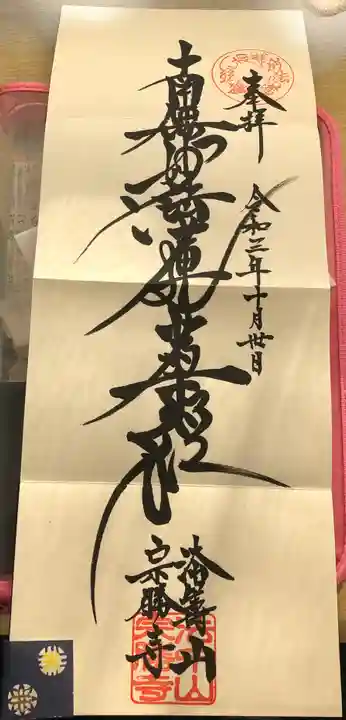 奉拝
令和三年十月卅日
南無妙法蓮華経
海善山
宗勝寺